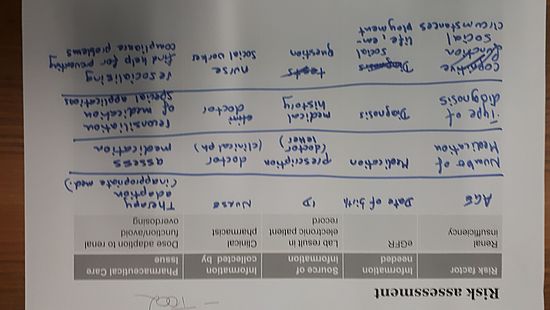 - TOOL
Risk assessment
Risk factor
Information
needed
Source of
Information
Information
collected by
Pharmaceutical Care
Issue
Renal
insufficiency
eGFR
Lab result in
electronic patient
record
Clinical
pharmacist
Dose adaption to renal
function/avoid
overdosing
AGE
Date of birth
ID
Nurse
Therapy
adaption
(inappropriate med.)
Number of
Medication
Medication
prescription
(doctor
letter)
doctor
(clinical ph)
assess
medication
Type of
diagnosis
Diagnosis
medical
history
doctor
reconsiliation
of medication
special application
cognitive
function
social
circumstances
Diagnosis
social
life, em-
ployment
question
nurse
social worker
resocialising
find help for preventing
compliance problems